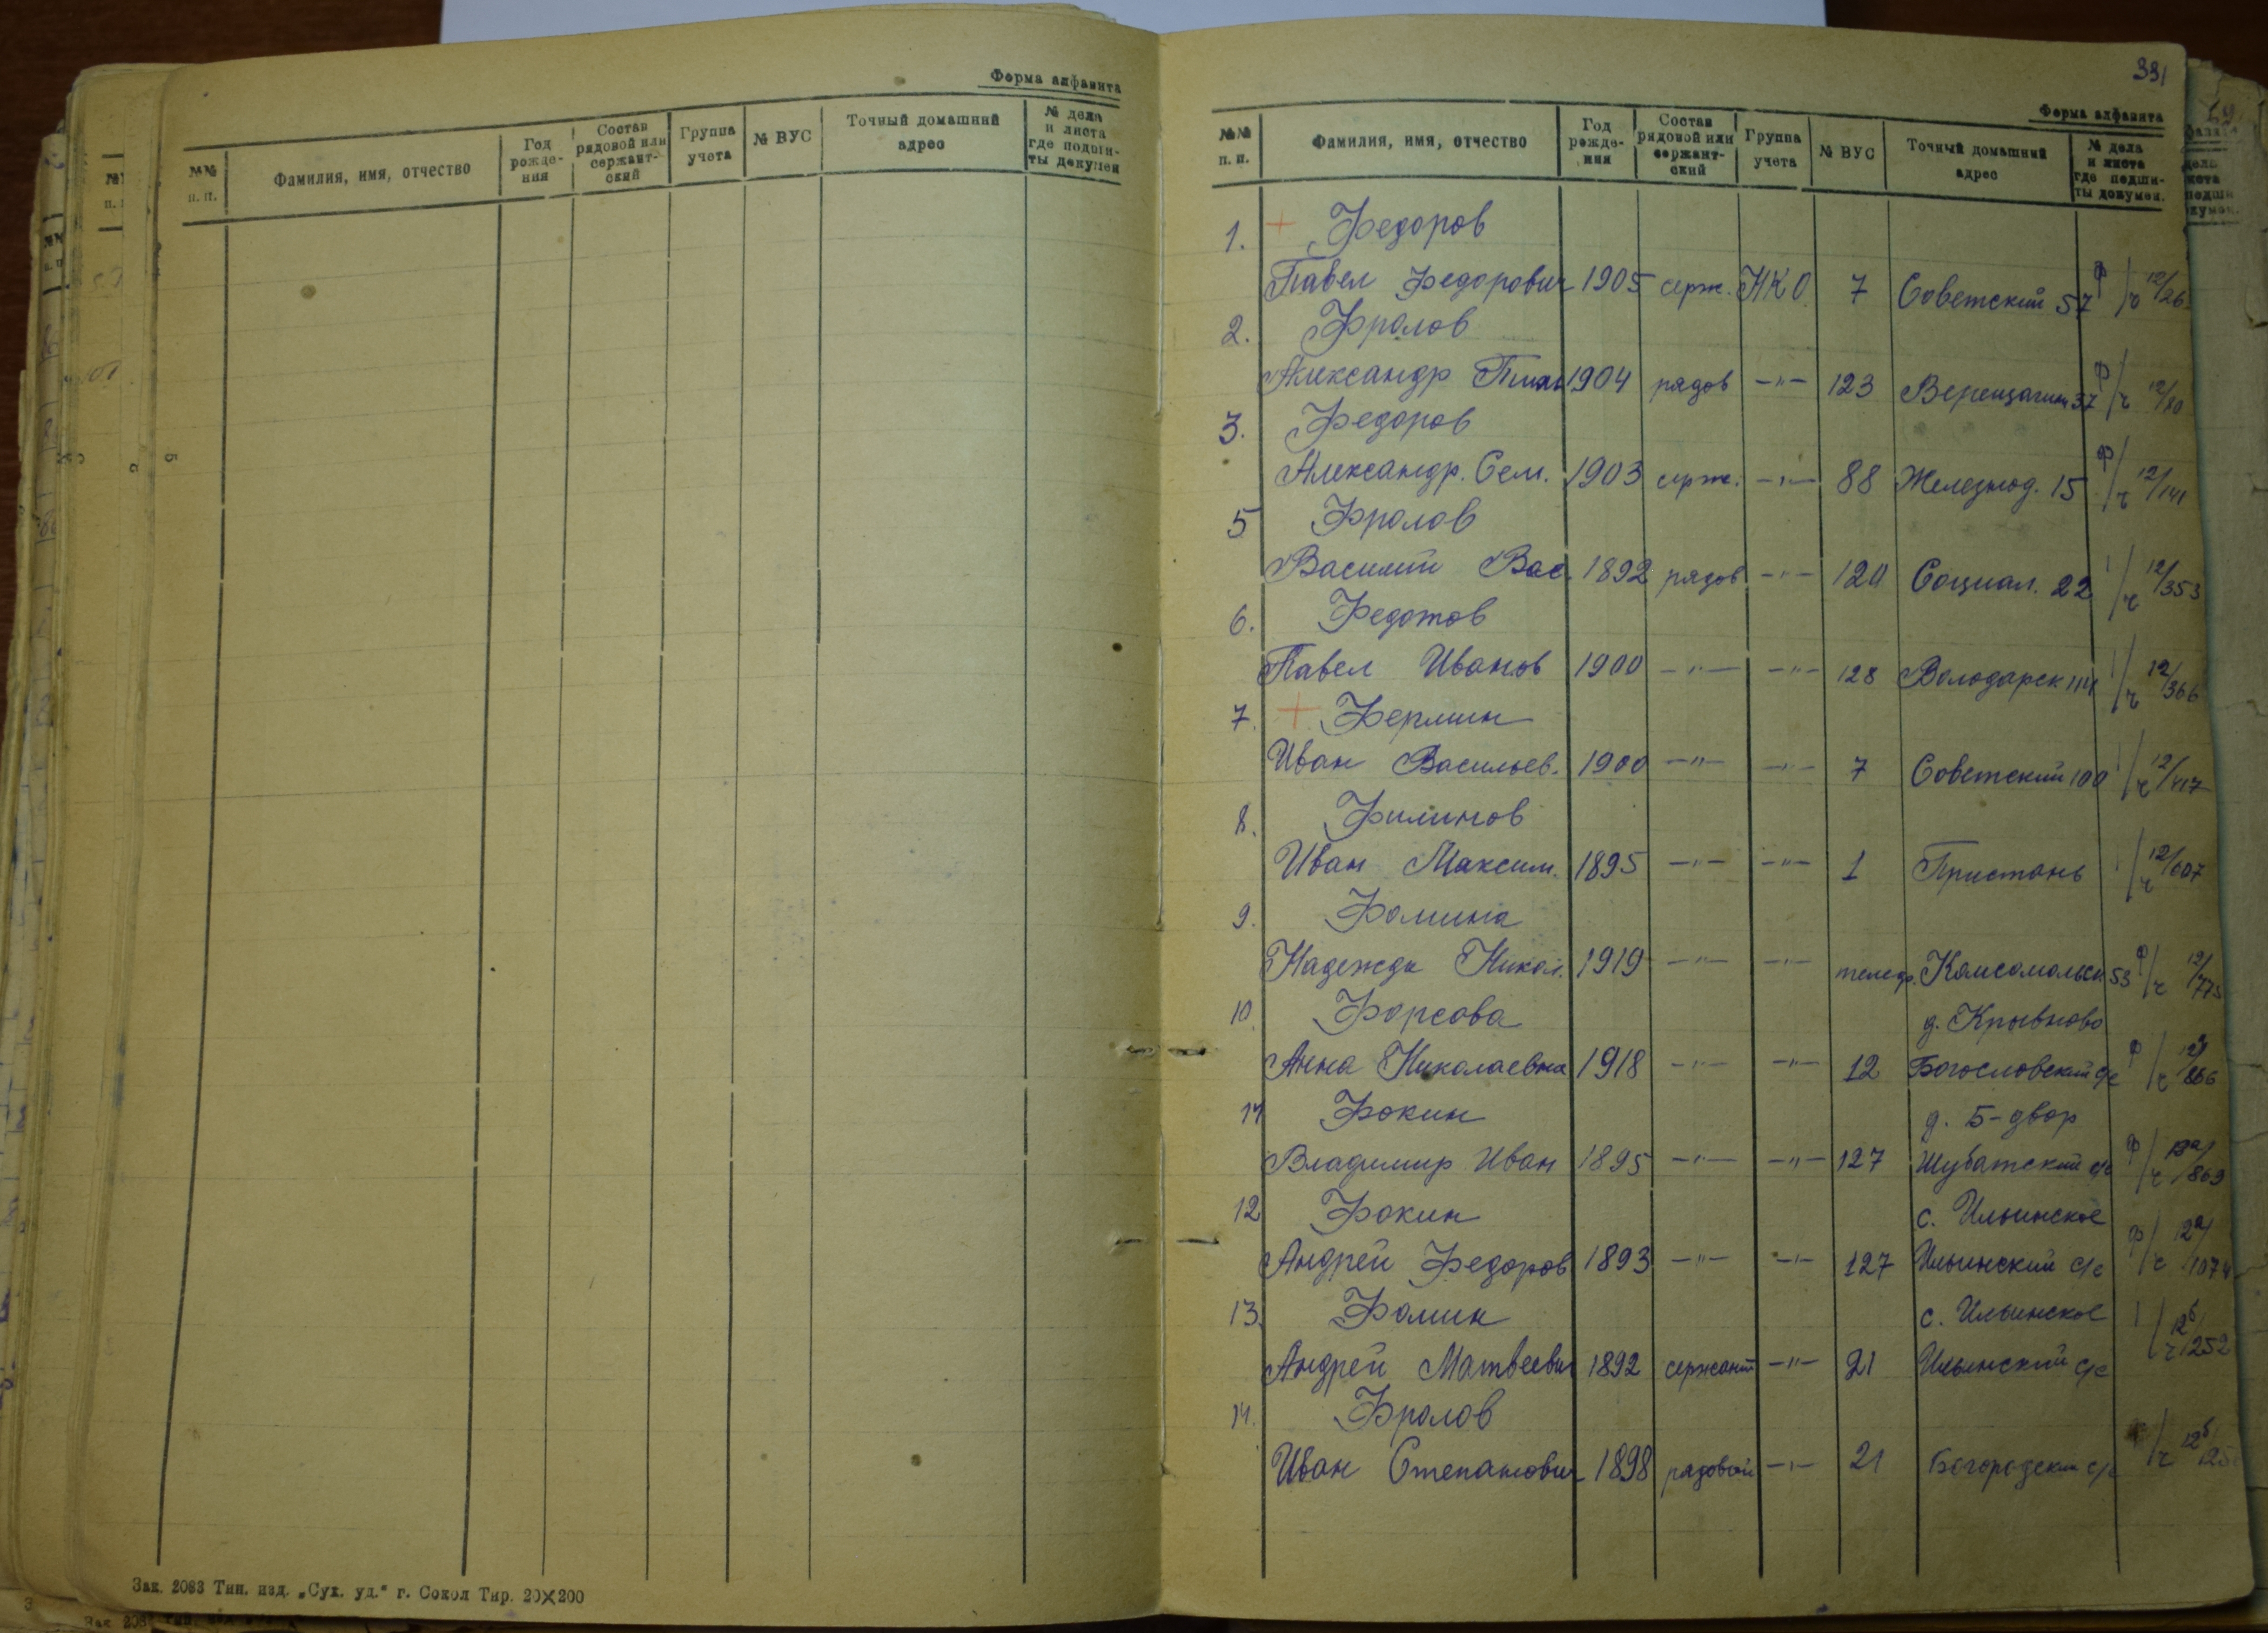 Форма алфавита
№№ п. п. Фамилия, имя, отчество Год рожде- ния Состав рядовой или сержант- ский Группа учета № ВУС Точный домашний адрес № дела и листа где подши- ты докумен
Зак. 2083 Тип. изд. „Сух. уд.“ г. Сокол Тир. 20×200
331
Форма алфавита
№№ п. п. Фамилия, имя, отчество Год рожде- ния Состав рядовой или сержант- ский Группа учета № ВУС Точный домашний адрес № дела и листа где подши- ты докумен.
1. + Федоров
Павел Федорович 1905 серж. НКО 7 Советский 57 ф/ч 12/26
2. Фролов
Александр 1904 рядов -"- 123 Верещагин 37 ф/ч 12/80
3. Федоров
Александр. Сем. 1903 серж. -"- 88 Железнод. 15 ф/ч 12/141
5 Фролов
Василий Вас. 1892 рядов -"- 120 Социал. 22 /ч 12/353
6. Федотов
Павел Иванов 1900 -"- -"- 128 Володарск /ч 12/366
7. + Фермин
Иван Васильев. 1900 -"- -"- 7 Советский 100 /ч 12/417
8. Филинов
Иван Максим. 1895 -"- -"- 1 Пристань /ч 12/607
9. Фомина
Надежда Никол. 1919 -"- -"- телеф. Комсомольск 53 ф/ч 12/775
10. Форсова д. Крывново
Анна Николаевна 1918 -"- -"- 12 Богословский с/с ф/ч 12а/866
11 Фокин д. 5-двор
Владимир Иван 1895 -"- -"- 127 Шубатский с/с ф/ч 12а/869
12 Фокин с. Ильинское
Андрей Федоров 1893 -"- -"- 127 Ильинский с/с ф/ч 12а/1074
13. Фомин с. Ильинское
Андрей Матвеевич 1892 сержант -"- 21 Ильинский с/с /ч 12б/1252
14. Фролов
Иван Степанович 1898 рядовой -"- 21 Богородский с/с /ч 12б